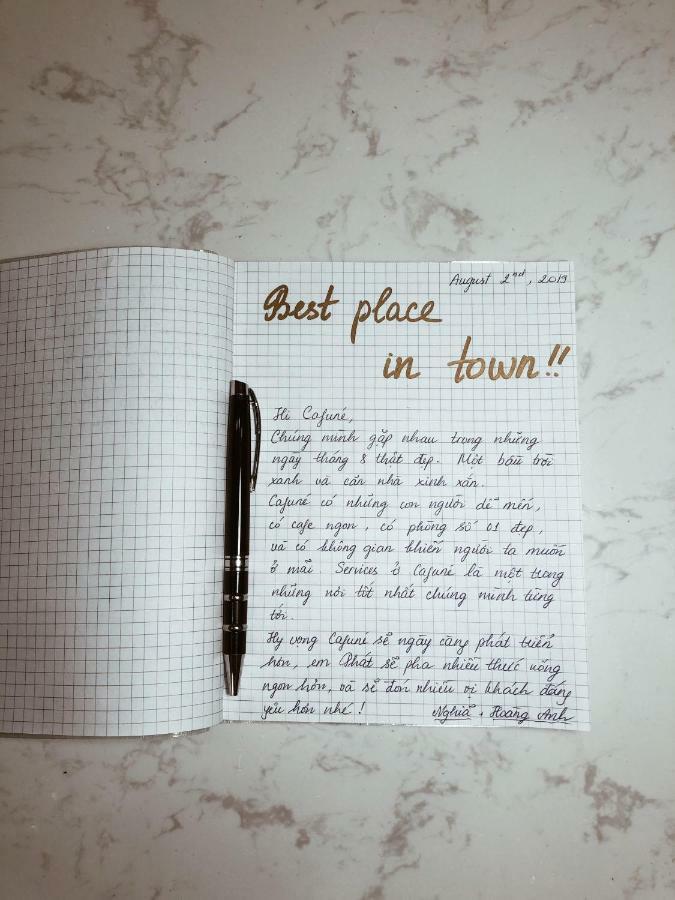 August 2nd, 2019
Best place
in town!!
Hi Cafuné,
Chúng mình gặp nhau trong những
ngày tháng 8 thật đẹp. Một bầu trời
xanh và căn nhà xinh xắn.
Cafuné có những con người dễ mến,
có cafe ngon, có phòng số 01 đẹp,
và có không gian khiến người ta muốn
ở mãi. Services ở Cafuné là một trong
những nơi tốt nhất chúng mình từng
tới.
Hy vọng Cafuné sẽ ngày càng phát triển
hơn, em Phát sẽ pha nhiều thức uống
ngon hơn, và sẽ đón nhiều vị khách đáng
yêu hơn nhé!
Nghĩa + Hoàng Anh